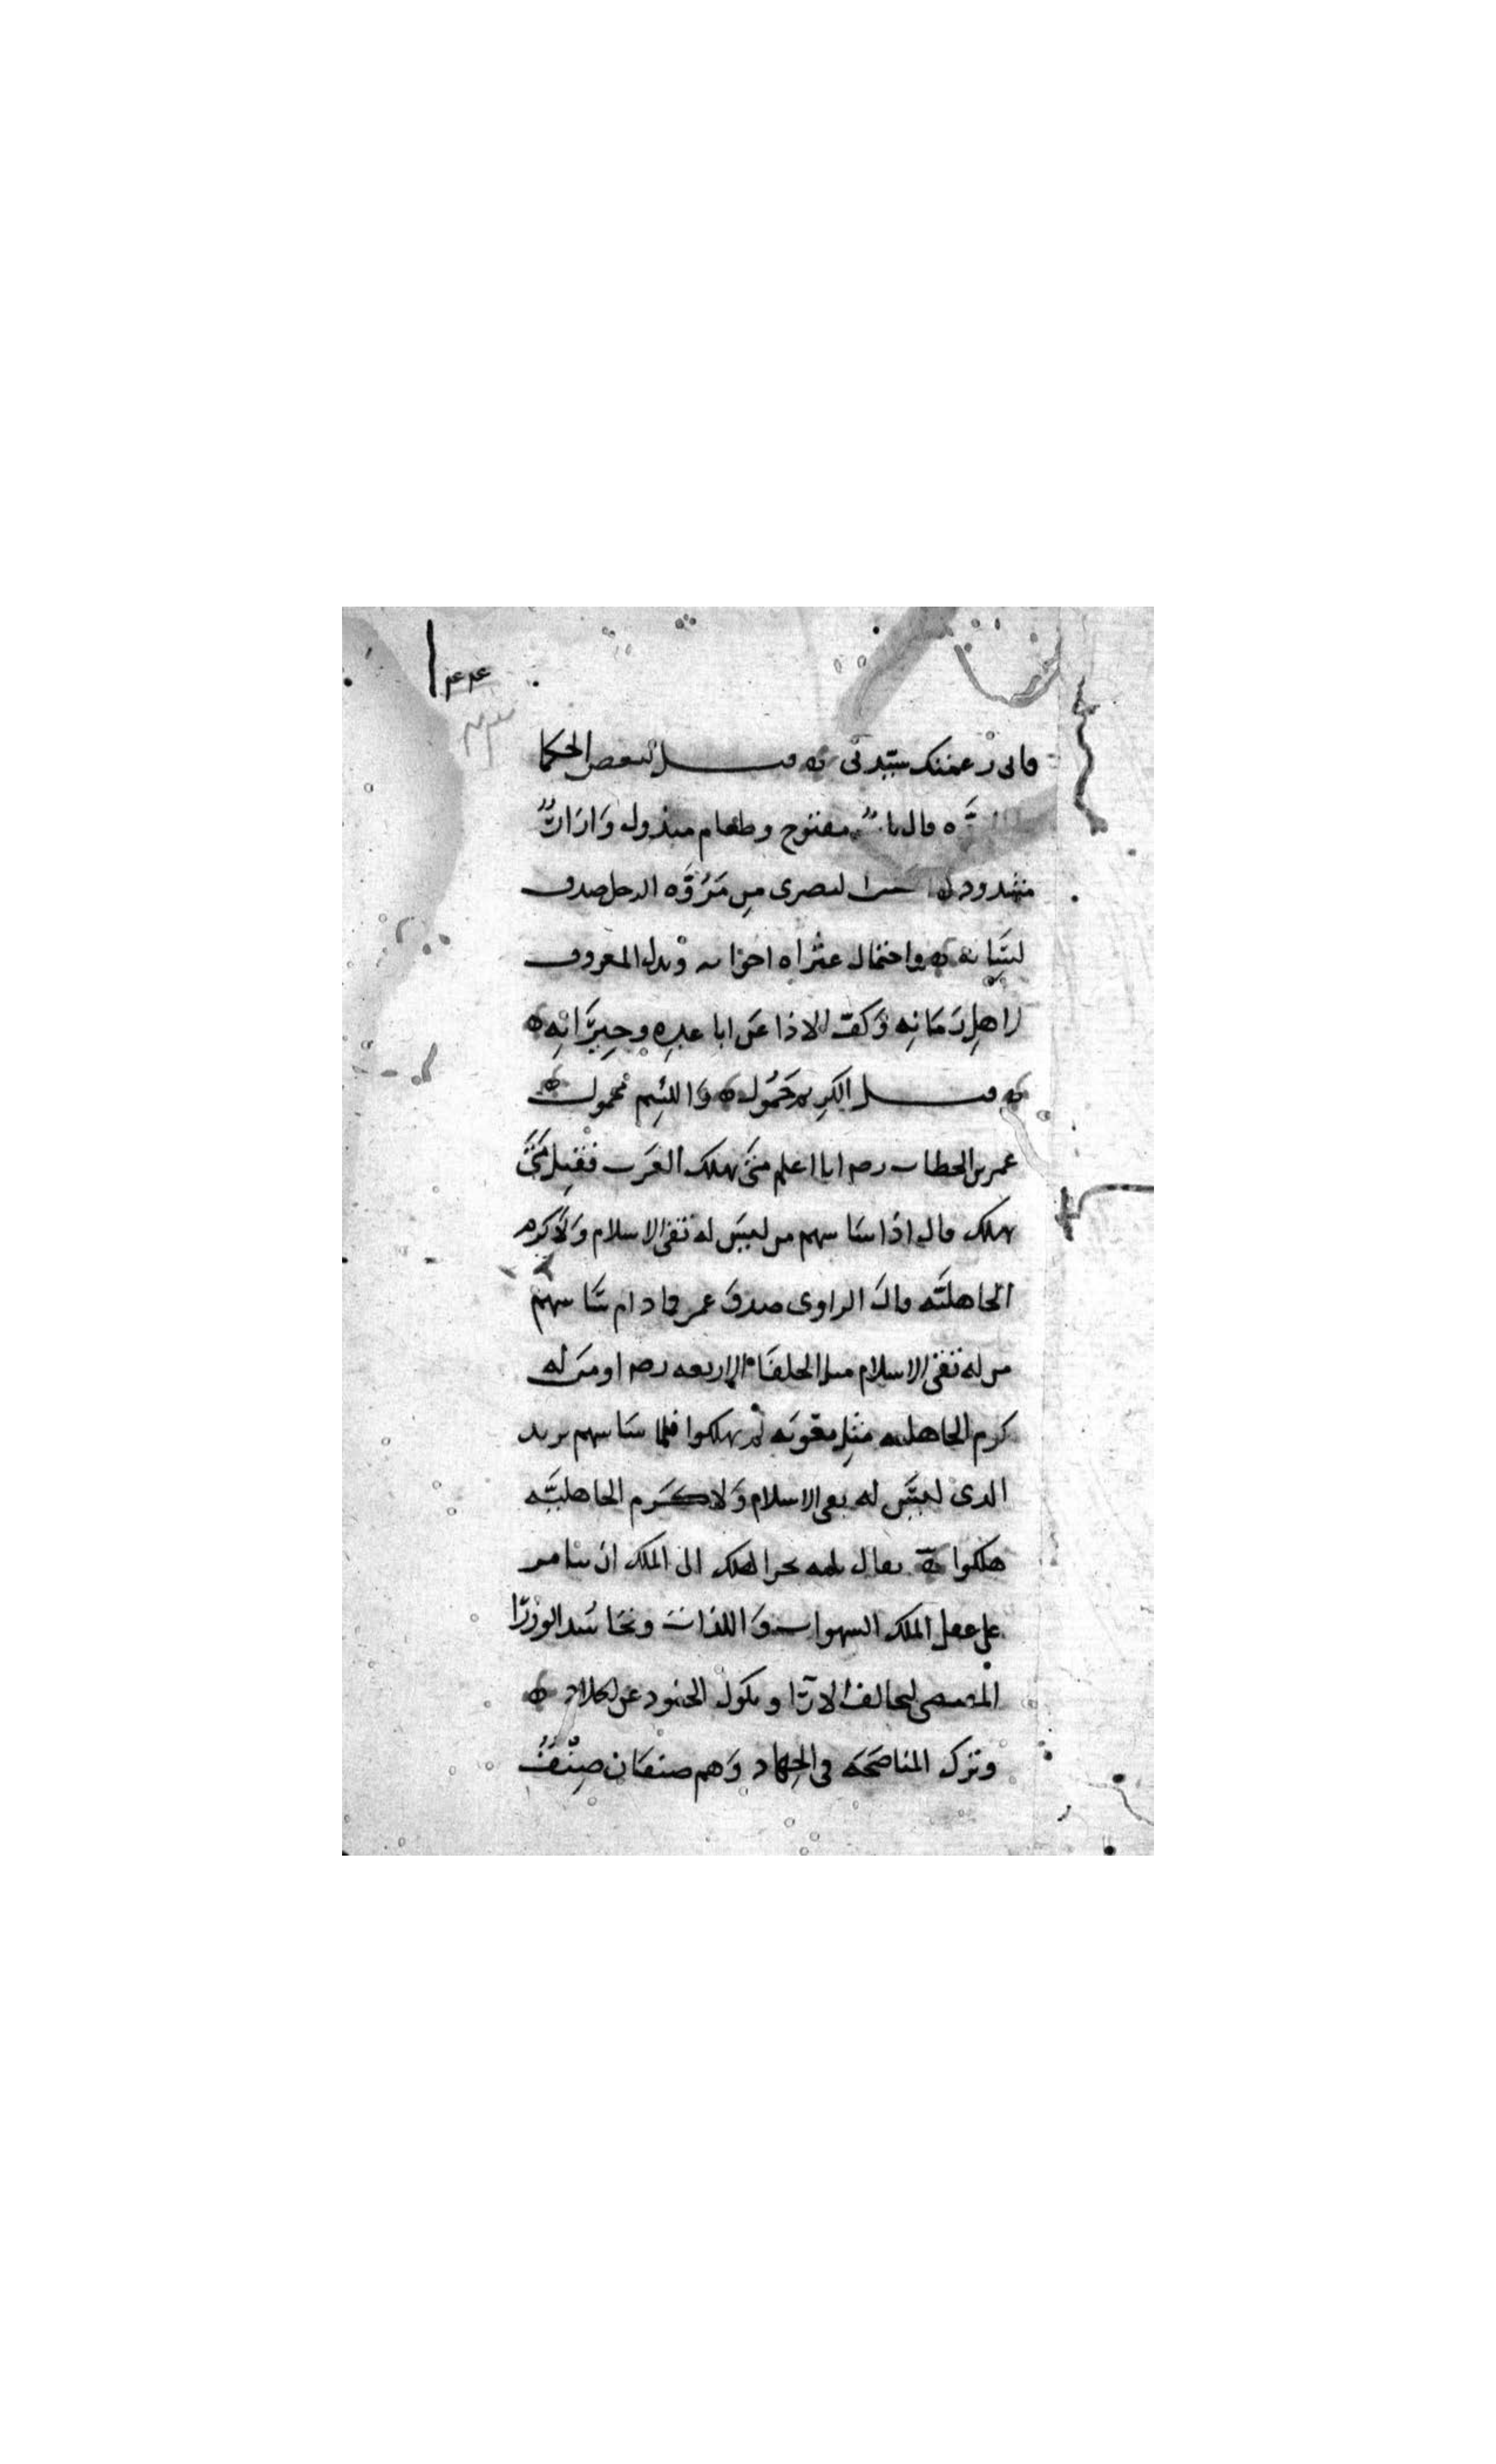 ٤٤
فانى زعمتك ستبدلى قيل لبعض الحكما
قال باب مفتوح وطعام مبذول وازار
مشدود البصرى من مروّه الرجل صدق
لسانه واحتمال عثراه اخوانه وبذل المعروف
لاهل زمانه وكف الاذا عن اباعده وجيرانه
قيل الكريم حمول واللئيم محمول
عمر بن الخطاب رضه انا اعلم متى يهلك العرب فقيل متى
يهلك قال اذا ساسهم من ليس له تقى الاسلام ولا كرم
الجاهليه قال الراوى صدق عمر فما دام ساسهم
من له تقى الاسلام مثل الخلفا الاربعه رضه او من له
كرم الجاهليه مثل معويه لم يهلكوا فلما ساسهم يزيد
الذى ليس له تقى الاسلام ولا كرم الجاهليه
هلكوا يقال ثلمه الملك ان تتامر
على عقل الملك الشهوات واللذات وتحاسد الوزرا
لتخالف الارا ونكول الجنود عن الجلاد
وترك المناصحه فى الجهاد وهم صنفان صنف